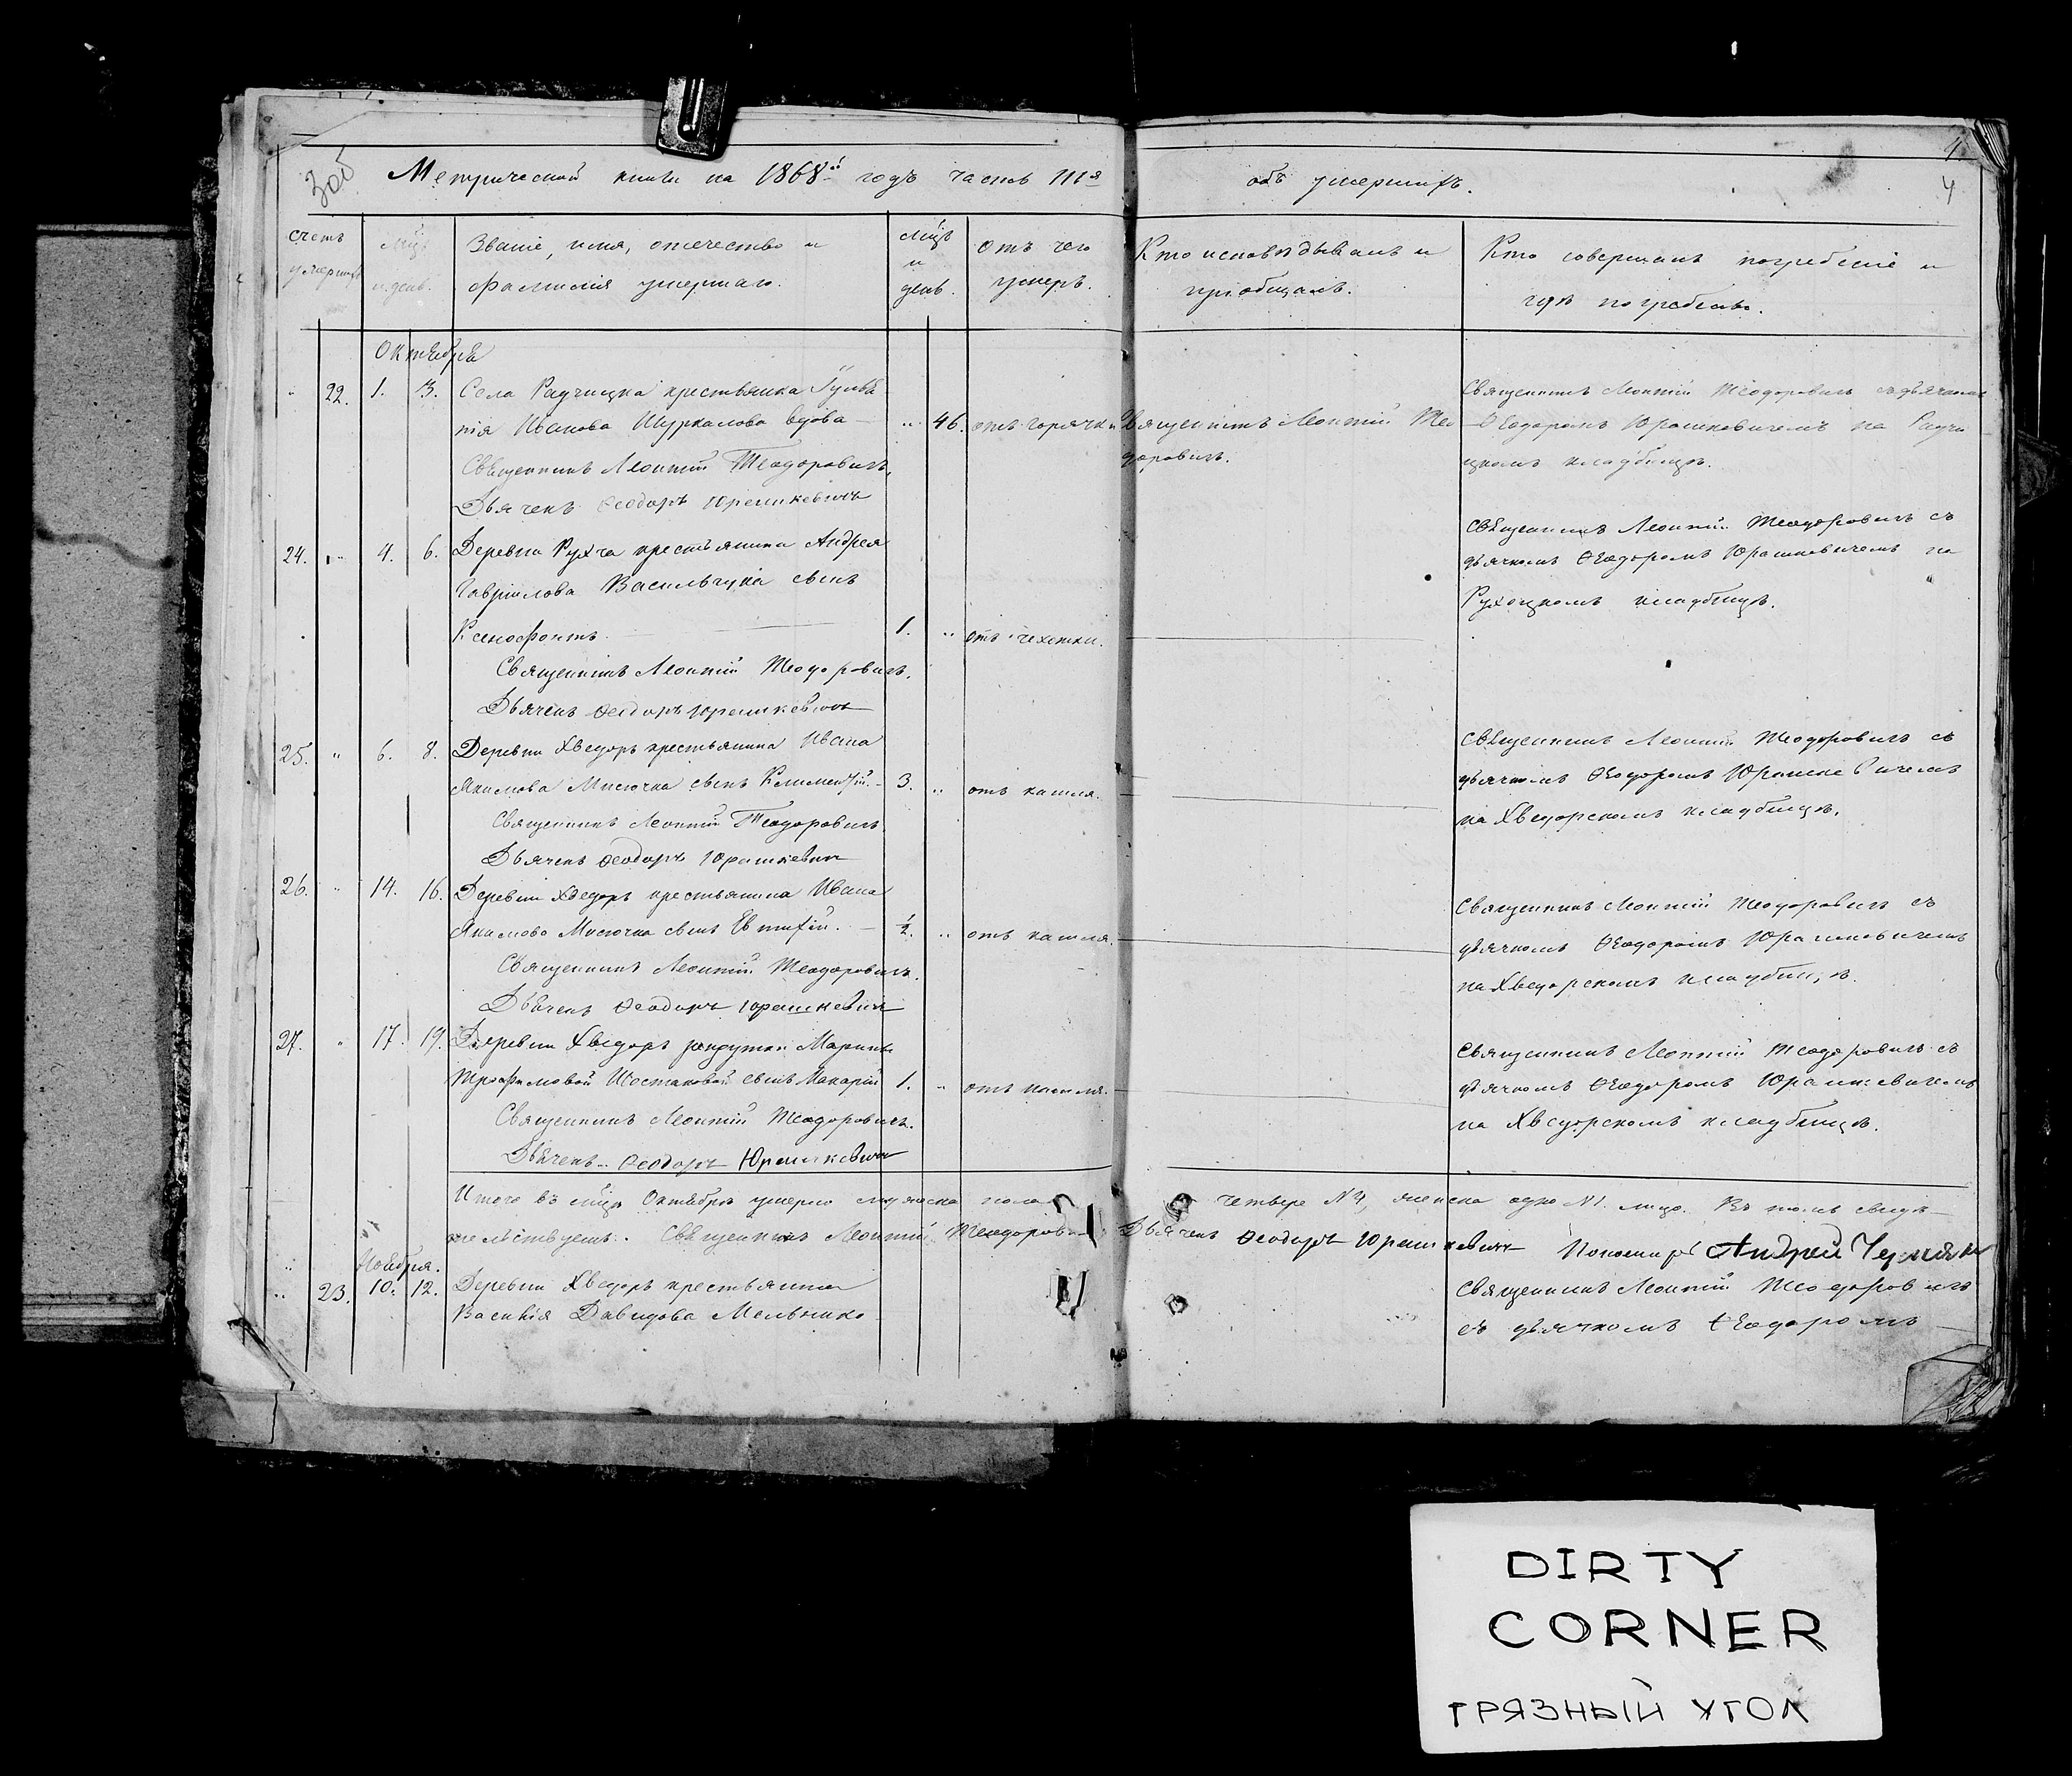 Метрической книги на 1868й годъ часть IIIя
объ умершихъ.
4
4
Счетъ умершихъ
Мцъ и день.
Званіе, имя, отчество и фамилія умершаго.
Мцъ и день.
Отъ чего умеръ.
Кто исповѣдывалъ и пріобщалъ.
Кто совершалъ погребеніе и гдѣ погребенъ.
Октября
" 22. 1. 3. Села Радчицка крестьянка
Иванова вдова — " 46. отъ горячки
Священникъ Леонтій Теодоровичъ,
Дьячекъ Ѳеодоръ Юрашкевичъ
Священникъ Леонтій Тео
доровичъ.
Священникъ Леонтій Теодоровичъ съ дьячкомъ
Ѳеодоромъ Юрашкевичемъ на Радчи
цкомъ кладбищѣ.
24. " 4. 6. Деревни Рухча крестьянина Андрея
Гавріилова Васильчука сынъ
Ксенофонтъ. 1. " отъ чехотки.
Священникъ Леонтій Теодоровичъ.
Дьячекъ Ѳеодоръ Юрашкевичъ
Священникъ Леонтій Теодоровичъ съ
дьячкомъ Ѳеодоромъ Юрашкевичемъ на
Рухоцкомъ кладбищѣ.
25. " 6. 8. Деревни Хведоръ крестьянина Ивана
Якимова Мисючка сынъ Климентій. 3. " отъ кашля.
Священникъ Леонтій Теодоровичъ
Дьячекъ Ѳеодоръ Юрашкевичъ
Священникъ Леонтій Теодоровичъ съ
дьячкомъ Ѳеодоромъ Юрашкевичемъ
на Хведорскомъ кладбищѣ.
26. " 14. 16. Деревни Хведоръ крестьянина Ивана
Якимова Мисючка сынъ Евтихій. — 1/2. " отъ кашля.
Священникъ Леонтій Теодоровичъ.
Дьячекъ Ѳеодоръ Юрашкевичъ
Священникъ Леонтій Теодоровичъ съ
дьячкомъ Ѳеодоромъ Юрашкевичемъ
на Хведорскомъ кладбищѣ.
27. " 17. 19. Деревни Хведоръ Марины
Трофимовой Шостаковой сынъ Макарій 1. " отъ кашля.
Священникъ Леонтій Теодоровичъ.
Дьячекъ Ѳеодоръ Юрашкевичъ
Священникъ Леонтій Теодоровичъ съ
дьячкомъ Ѳеодоромъ Юрашкевичемъ
на Хведорскомъ кладбищѣ.
Итого въ мцѣ Октябрѣ умерло мужеска пола четверо N 4, женска одно N 1. лицо. Въ томъ свидѣ-
тельствуетъ. Священникъ Леонтій Теодорови Дьячекъ Ѳеодоръ Юрашкевичъ Андрей
Ноября.
" 23. 10. 12. Деревни Хведоръ крестьянина
Василія Давидова Мельника
Священникъ Леонтій Теодоровичъ
съ дьячкомъ Ѳеодоромъ
DIRTY
CORNER
ГРЯЗНЫЙ УГОЛ